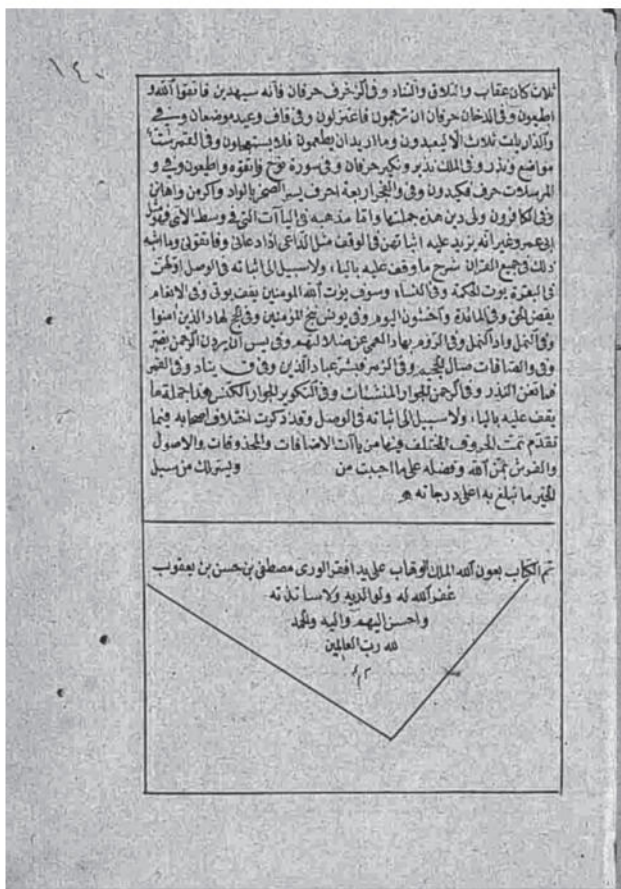 ١٤٠
ثلاث كان عقاب والتلاق والتناد وفي الزخرف حرفان فانه سيهدين فاتقوا الله و
اطيعون وفي الدخان حرفان ان ترجمون فاعتزلون وفي قاف وعيد موضعان وفي
والذاريات ثلاث الا ليعبدون وما اريد ان يطعمون فلا يستعجلون وفي القمر ستة
مواضع ونذر وفي الملك نذير ونكير حرفان وفي سورة نوح واتقوه واطيعون وفي و
المرسلات حرف فكيدون وفي والفجر اربعة احرف يسر الصخر بالواد واكرمن واهانن
وفي الكافرون ولي دين هذه جملتها واما مذهبه في اليآات التي في وسط الاى
ابى عمرو غير انه يزيد عليه اثباتهن في الوقف مثل الداعي اذا دعاني واتقوني وما اشبه
ذلك في جميع القران شرح ما وقف عليه بالياء ولا سبيل الى اثباته في الوصل اولهن
في البقرة يوت الحكمة وفي النساء وسوف يوت الله المومنين يقف يوتي وفي الانعام
يقض الحق وفي المائدة واخشون اليوم وفي يونس ننج المؤمنين وفي الحج لهاد الذين امنوا
وفي النمل واد النمل وفي الروم بهاد العمي عن ضلالتهم وفي يس ان يردن الرحمن بضر
وفي والصافات صال الجحيم وفي الزمر فبشر عباد الذين وفي ق يناد وفي القمر
فما تغن النذر وفي الرحمن الجوار المنشئات وفي التكوير الجوار الكنس هذا جملة ما
يقف عليه بالياء ولا سبيل الى اثباته في الوصل وقد ذكرت اختلاف اصحابه فيما
تقدم تمت الحروف المختلف فيها من يآات الاضافات والمحذوفات والاصول
والفرش بمن الله وفضله على ما احببت من ويسر لك من سبل
الخير ما تبلغ به اعلى درجاته
تم الكتاب بعون الله الملك الوهاب على يد افقر الورى مصطفى بن حسن بن يعقوب
غفر الله له ولوالديه ولاساتذته
واحسن اليهم واليه والحمد
لله رب العالمين